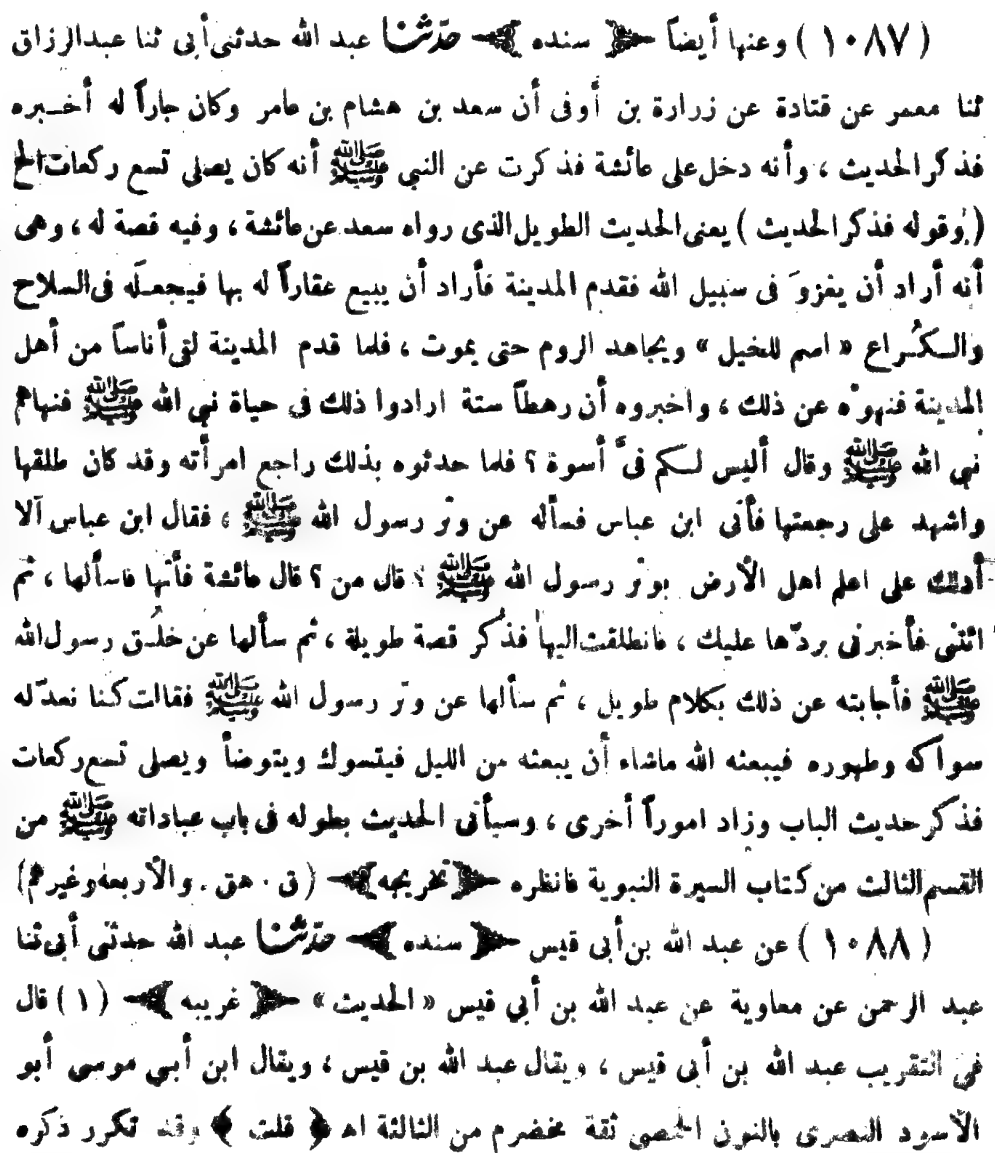 ( ١٠٨٧ ) وعنها أيضاً ﴿ سنده ﴾ حدّثنا عبد الله حدثنى أبى ثنا عبدالرزاق
ثنا معمر عن قتادة عن زرارة بن أوفى أن سعد بن هشام بن عامر وكان جاراً له أخبره
فذكر الحديث ، وأنه دخل على عائشة فذكرت عن النبى ﷺ أنه كان يصلى تسع ركعات الخ
( وقوله فذكر الحديث ) يعنى الحديث الطويل الذى رواه سعد عن عائشة ، وفيه قصة له ، وهى
أنه أراد أن يغزوَ فى سبيل الله فقدم المدينة فأراد أن يبيع عقاراً له بها فيجعله فى السلاح
والكُراع « اسم للخيل » ويجاهد الروم حتى يموت ، فلما قدم المدينة لقى أناساً من أهل
المدينة فنهوْه عن ذلك ، واخبروه أن رهطاً ستة ارادوا ذلك في حياة نبي الله ﷺ فنهاهم
نبي الله ﷺ وقال أليس لكم فىَّ أسوة ؟ فلما حدثوه بذلك راجع امرأته وقد كان طلقها
واشهد على رجعتها فأتى ابن عباس فسأله عن وتر رسول الله ﷺ ، فقال ابن عباس آلا
أدلك على اعلم اهل الأرض بوتر رسول الله ﷺ ؟ قال من ؟ قال عائشة فأتها فاسألها ، ثم
ائتنى فأخبرنى بردّها عليك ، فانطلقت اليها فذكر قصة طويلة ، ثم سألها عن خلُق رسول الله
ﷺ فأجابته عن ذلك بكلام طويل ، ثم سألها عن وتر رسول الله ﷺ فقالت كنا نعدّ له
سواكه وطهوره فيبعثه الله ماشاء أن يبعثه من الليل فيتسوك ويتوضأ ويصلى تسع ركعات
فذكر حديث الباب وزاد اموراً أخرى ، وسيأتى الحديث بطوله فى باب عباداته ﷺ من
القسم الثالث من كتاب السيرة النبوية فانظره ﴿ تخريجه ﴾ ( ق . هق . والأربعة وغيرهم )
( ١٠٨٨ ) عن عبد الله بن أبى قيس ﴿ سنده ﴾ حدّثنا عبد الله حدثنى أبى ثنا
عبد الرحمن عن معاوية عن عبد الله بن أبي قيس « الحديث » ﴿ غريبه ﴾ ( ١ ) قال
في التقريب عبد الله بن أبى قيس ، ويقال عبد الله بن قيس ، ويقال ابن أبي موسى أبو
الأسود النصرى بالنون الحمصى ثقة مخضرم من الثالثة اه ﴿ قلت ﴾ وقد تكرر ذكره